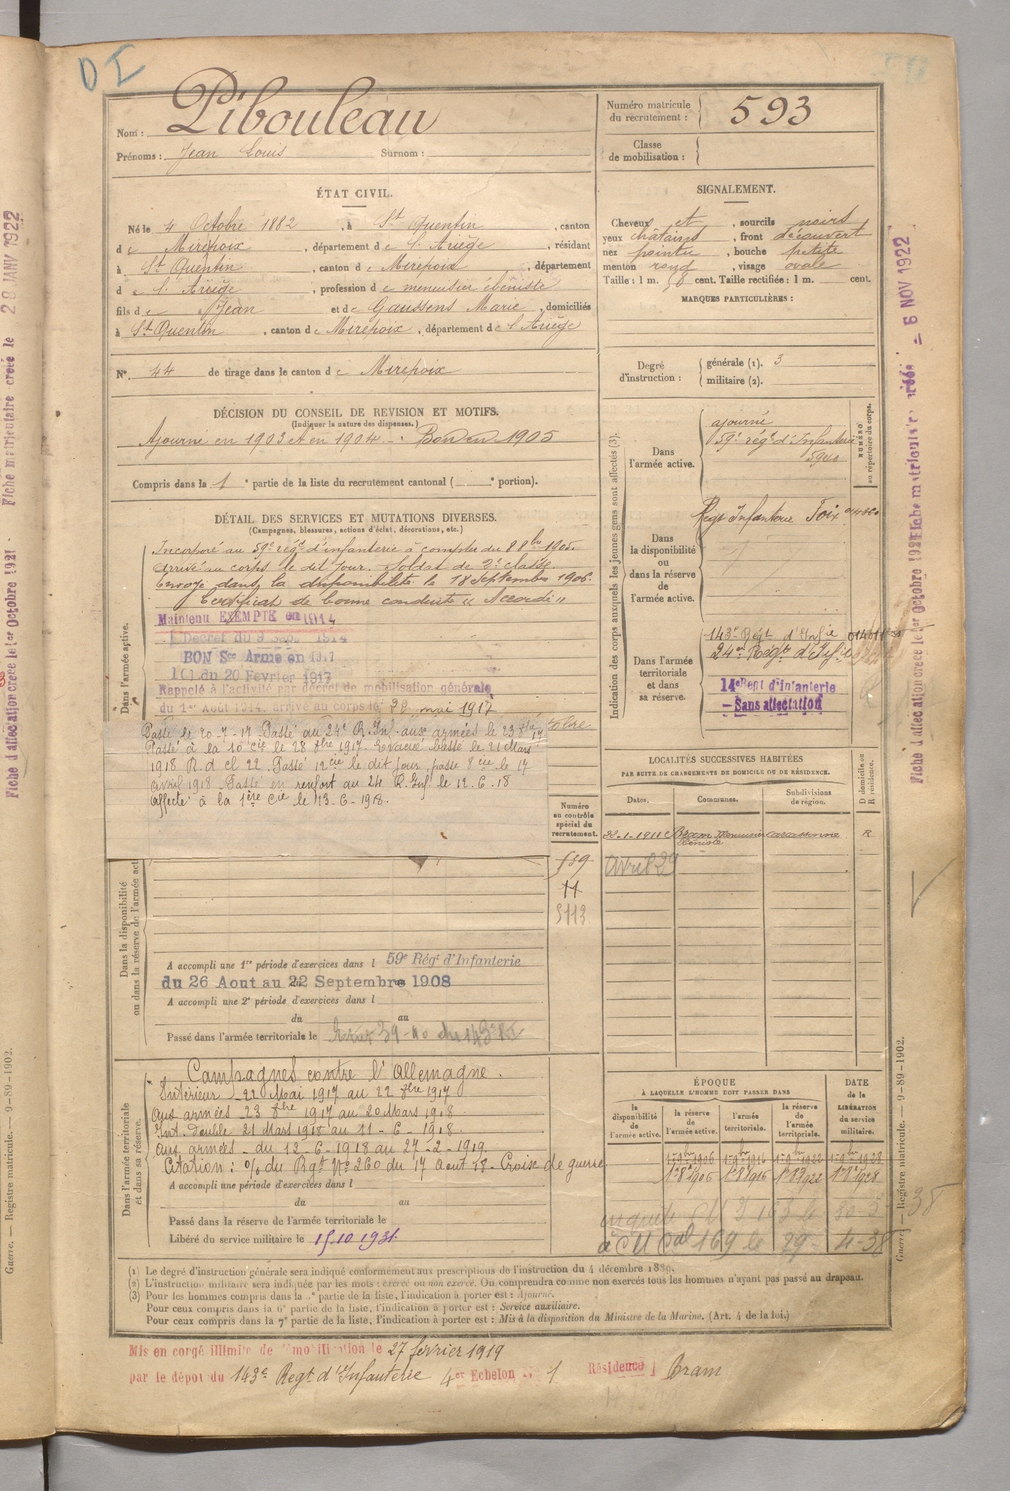 D I
Nom : Pibouleau
Prénoms : Jean Louis Surnom :
Numéro matricule du recrutement : 593
Classe de mobilisation :
ÉTAT CIVIL.
Né le 4 Octobre 1882, à St Quentin, canton
de Mirepoix, département de l'Ariège, résidant
à St Quentin, canton de Mirepoix, département
de l'Ariège, profession de menuisier ébéniste
fils de Jean et de Gaussens Marie, domiciliés
à St Quentin, canton de Mirepoix, département de l'Ariège
N° 44 de tirage dans le canton de Mirepoix
SIGNALEMENT.
Cheveux et, sourcils noirs
yeux châtains, front découvert
nez pointu, bouche petite
menton rond, visage ovale
Taille : 1 m. 56 cent. Taille rectifiée : 1 m. cent.
MARQUES PARTICULIÈRES :
Degré d'instruction : générale (1). 3
militaire (2).
DÉCISION DU CONSEIL DE REVISION ET MOTIFS.
(Indiquer la nature des dispenses.)
Ajourné en 1903 et en 1904 - Bon en 1905
Compris dans la 1e partie de la liste du recrutement cantonal ( e portion).
DÉTAIL DES SERVICES ET MUTATIONS DIVERSES.
(Campagnes, blessures, actions d'éclat, décorations, etc.)
Dans l'armée active.
Incorporé au 59e régt d'infanterie à compter du 8 8bre 1905.
Arrivé au corps le dit jour. Soldat de 2e classe
Envoyé dans la disponibilité le 18 Septembre 1906.
Certificat de bonne conduite "Accordé"
Maintenu EXEMPTE en 1914
Décret du 9 Sept. 1914
BON Sce Armé en 1917
du 20 Février 1917
Rappelé à l'activité par décret de mobilisation générale
du 1er Aout 1914. arrivé au corps le 22 mai 1917
Passé le 20-7-17. Passé au 24e R.Inf. aux armées le 23 8bre 17
Passé à la 10 cie le 28 8bre 1917. Evacué. Passé le 21 Mars
1918 R.d cl 22. Passé 12 cie le dit jour, passé 8 cie le 17
avril 1918 Passé en renfort au 24 R.Inf. le 12.6.18
affecté à la 1ère Cie le 13-6-1918.
Indication des corps auxquels les jeunes gens sont affectés (3).
NUMÉRO au répertoire du corps.
Dans l'armée active.
ajourné
59e régt d'Infanterie
Dans la disponibilité ou dans la réserve de l'armée active.
Régt Infanterie Foix
Dans l'armée territoriale et dans sa réserve.
143e Régt d'Infie
24me Régt d'Infie
14e Regt d'Infanterie
— Sans affectation
LOCALITÉS SUCCESSIVES HABITÉES
PAR SUITE DE CHANGEMENTS DE DOMICILE OU DE RÉSIDENCE.
Dates. Communes. Subdivisions de région. D domicile ou R résidence.
22.1.1911 Bram Menuisier ébéniste Carcassonne R
Avril 29
Numéro au contrôle spécial du recrutement.
539
11
Dans la disponibilité ou dans la réserve de l'armée act
A accompli une 1re période d'exercices dans l 59e Régt d'Infanterie
du 26 Aout au 22 Septembre 1908
A accompli une 2e période d'exercices dans l
du au
Passé dans l'armée territoriale le
Dans l'armée territoriale et dans sa réserve.
Campagnes contre l'Allemagne.
Intérieur 22 Mai 1917 au 22 8bre 1917
Aux armées 23 8bre 1917 au 20 Mars 1918
Int. double 21 Mars 1918 au 11-6-1918
Aux armées du 12-6-1918 au 27-2-1919.
Citation : O/ du Rgt No 260 du 17 Aout 18. Croix de guerre
A accompli une période d'exercices dans l
du au
Passé dans la réserve de l'armée territoriale le
Libéré du service militaire le 15.10 1931
ÉPOQUE À LAQUELLE L'HOMME DOIT PASSER DANS
DATE de la LIBÉRATION du service militaire.
la disponibilité de l'armée active. la réserve de l'armée active. l'armée territoriale. la réserve de l'armée territoriale.
(1) Le degré d'instruction générale sera indiqué conformément aux prescriptions de l'instruction du 4 décembre 1889.
(2) L'instruction militaire sera indiquée par les mots : exercé ou non exercé. On comprendra comme non exercés tous les hommes n'ayant pas passé au drapeau.
(3) Pour les hommes compris dans la 5e partie de la liste, l'indication à porter est : Ajourné.
Pour ceux compris dans la 6e partie de la liste, l'indication à porter est : Service auxiliaire.
Pour ceux compris dans la 7e partie de la liste, l'indication à porter est : Mis à la disposition du Ministre de la Marine. (Art. 4 de la loi.)
Mis en congé illimité de démobilisation le 27 février 1919
par le dépot du 143e Regt d'Infanterie 4e Echelon N° 1 Résidence Bram
Guerre. — Registre matricule. — 9-89-1902.
Guerre. — Registre matricule. — 9-89-1902.
Fiche matriculaire créée le 28 JANV 1922
Fiche d'affectation créée le 1er Octobre 1921
6 NOV 1922